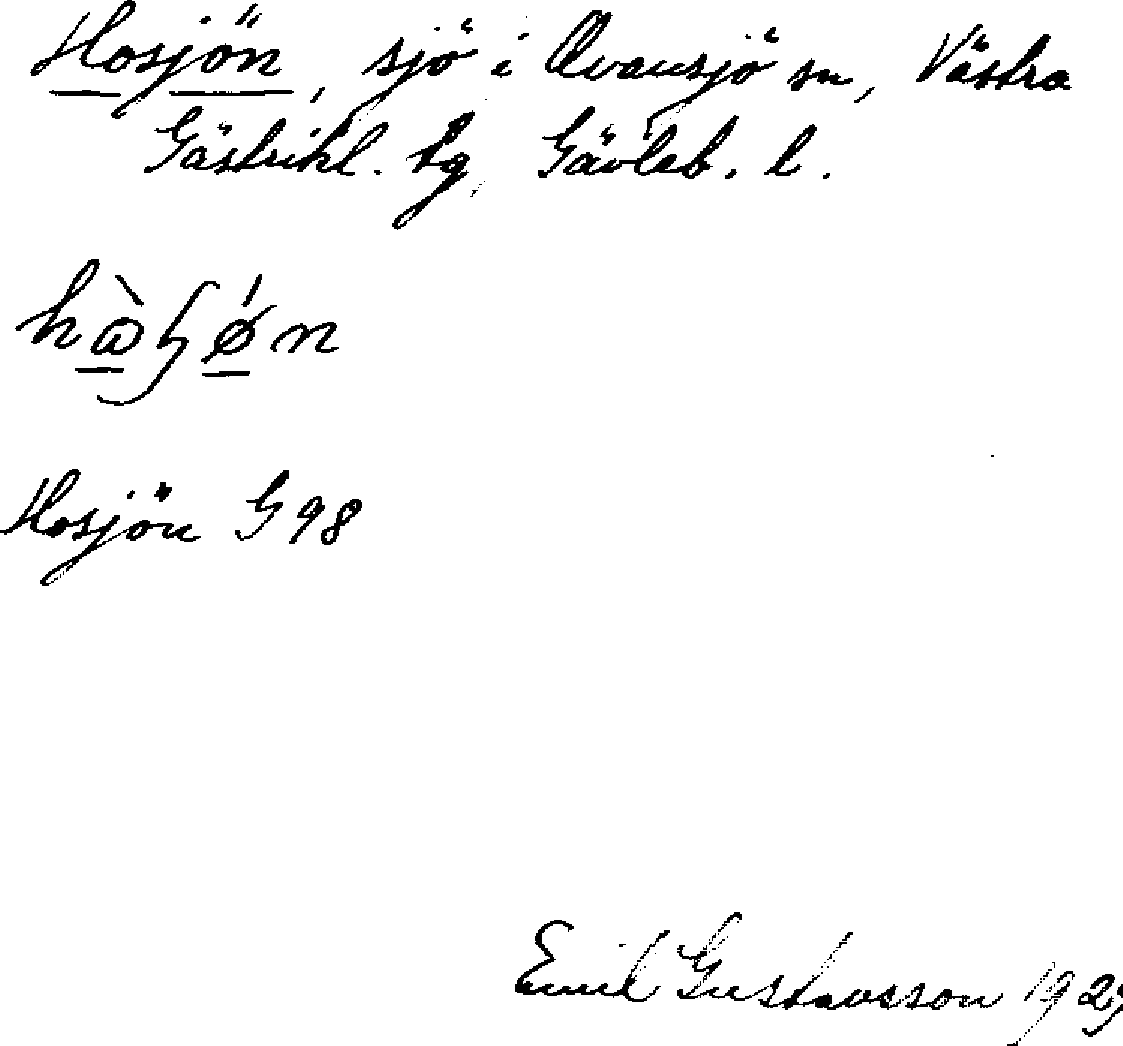 Hosjön, sjö i Ovansjö sn, Västra
Gästrikl. tg, Gävleb. l.
Hosjön G 98
Emil Gustavsson